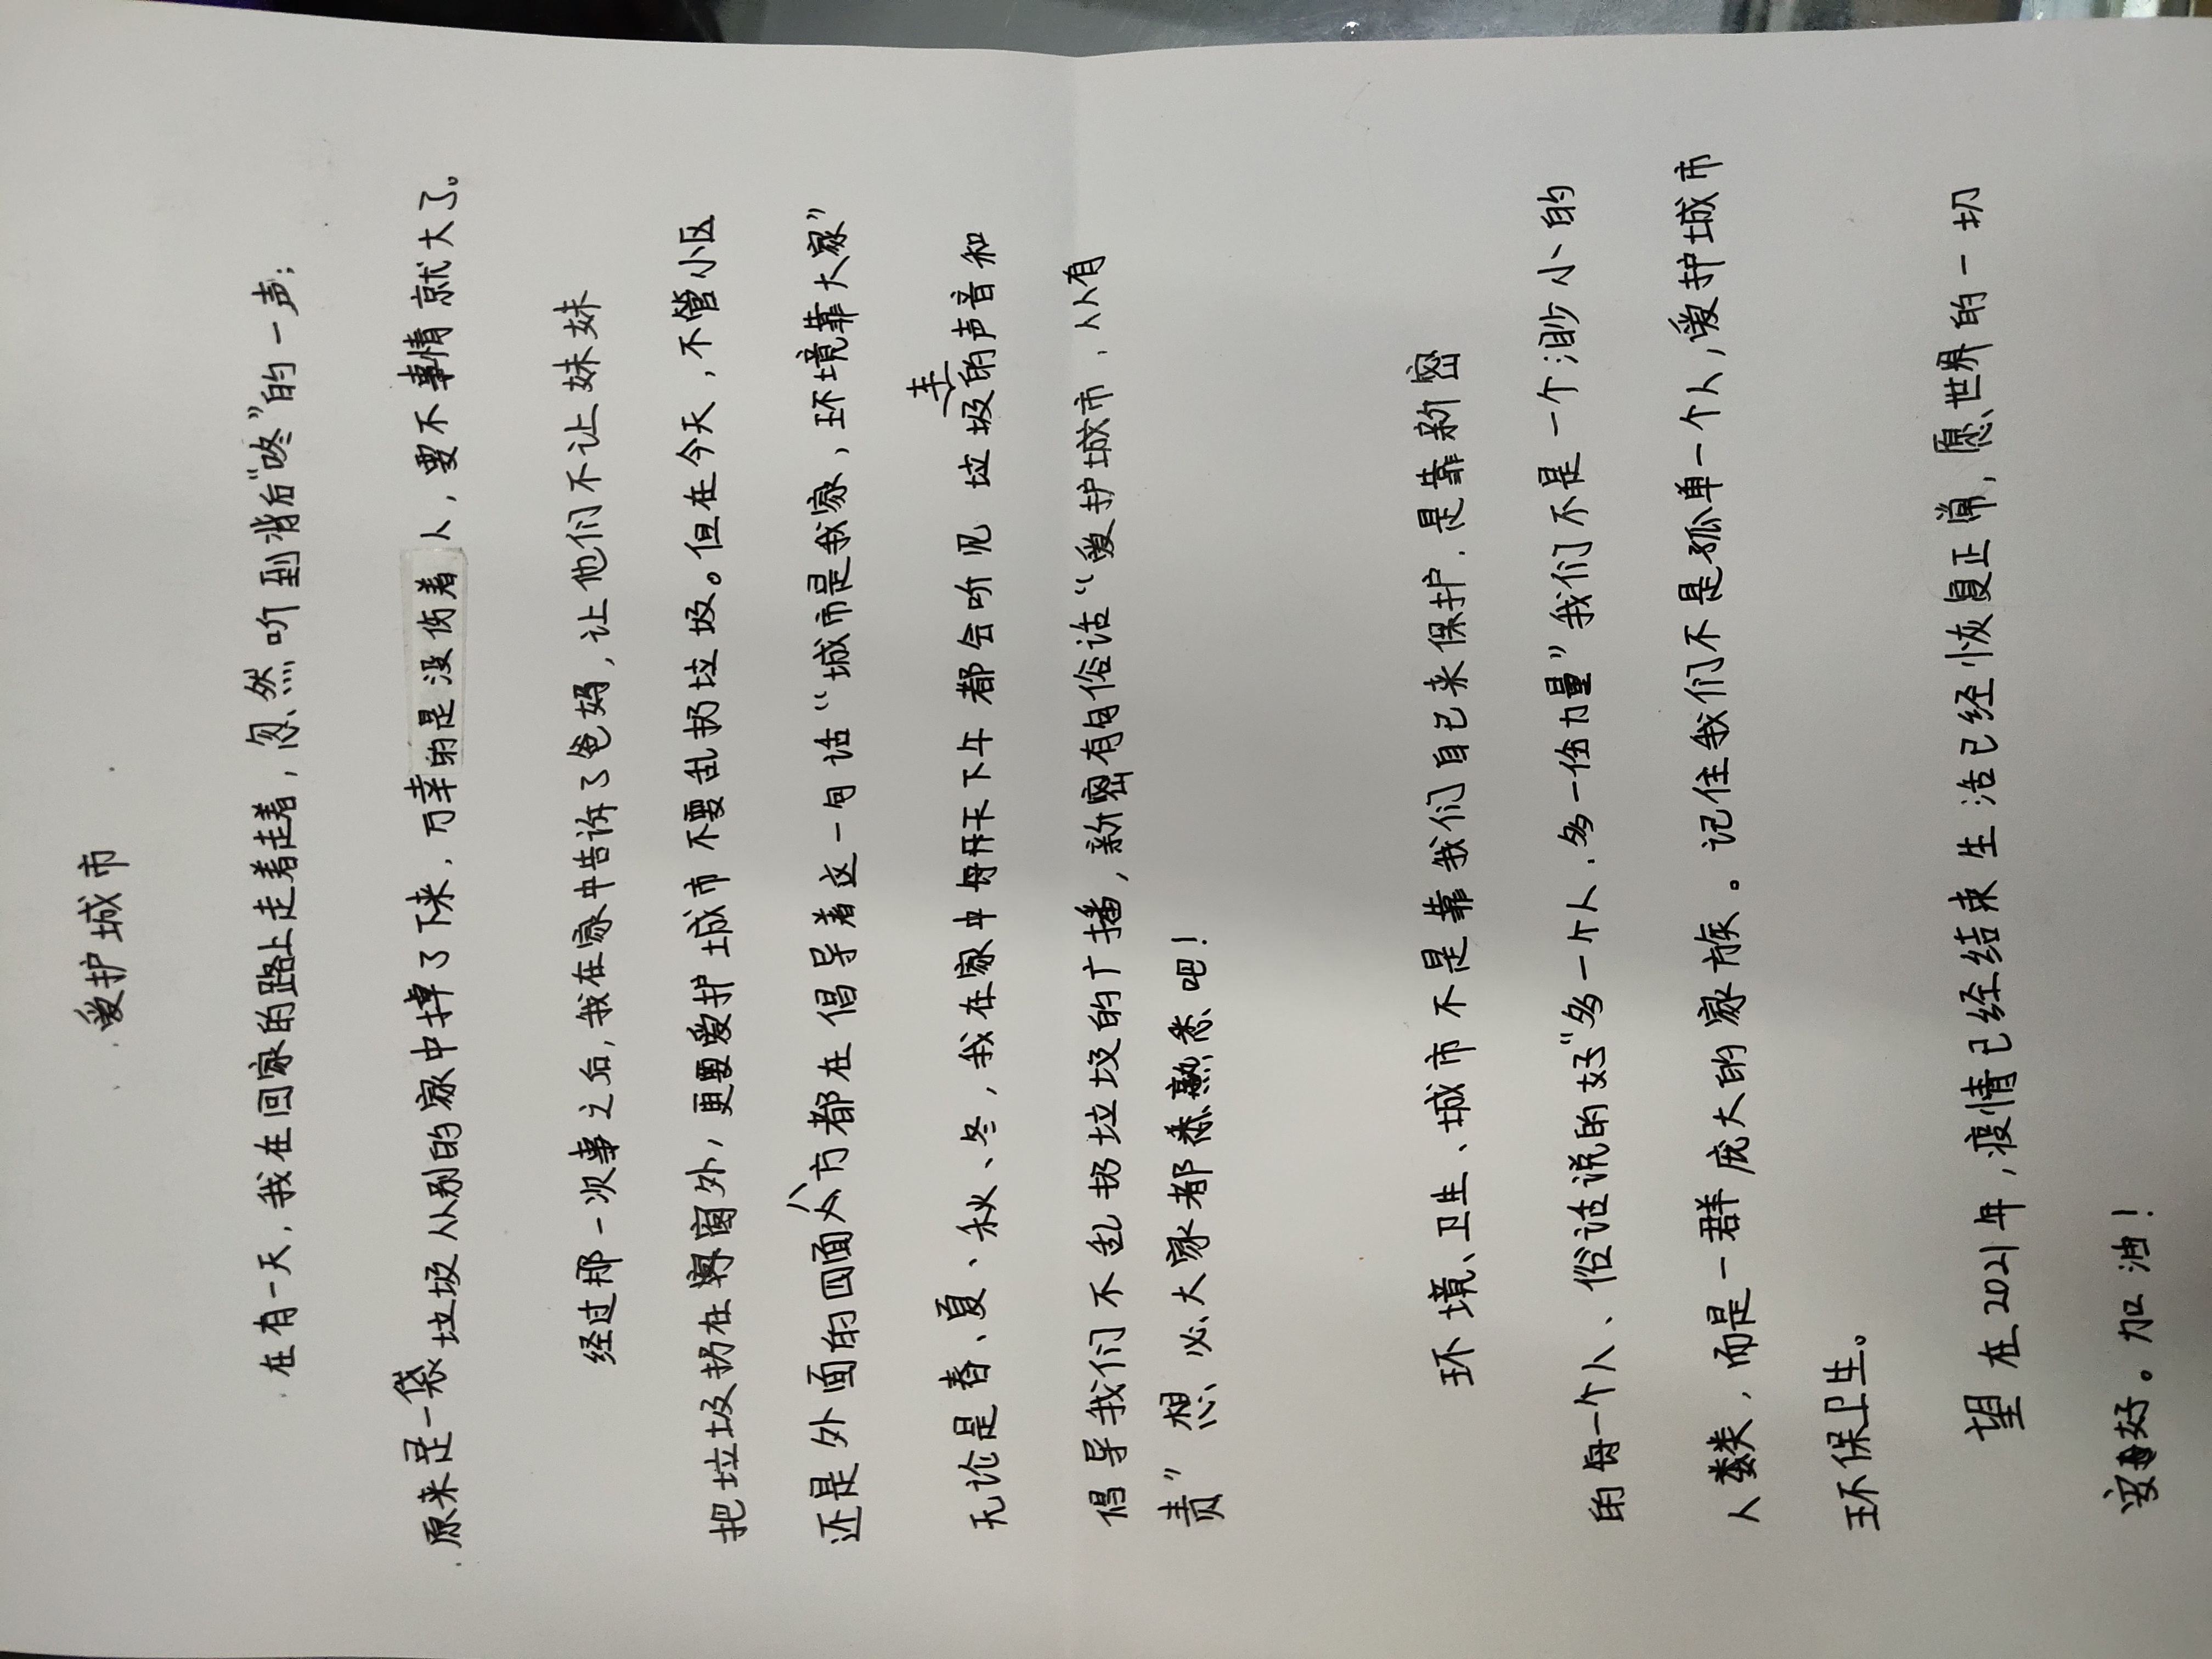 爱护城市
在有一天，我在回家的路上走着走着，忽然听到背后“咚”的一声；
原来是一袋垃圾从别的家中掉了下来，万幸的是没伤着人，要不事情就大了。
经过那一次事之后，我在家中告诉了爸妈，让他们不让妹妹
把垃圾扔在窗外，更要爱护城市不要乱扔垃圾。但在今天，不管小区
还是外面的四面八方都在倡导着这一句话“城市是我家，环境靠大家”
无论是春、夏、秋、冬，我在家中每天下午都会听见垃圾车的声音和
倡导我们不乱扔垃圾的广播，新密有句俗话“爱护城市，人人有
责”想必大家都熟悉吧！
环境、卫生、城市不是靠我们自己来保护，是靠新密
的每一个人、俗话说的好“多一个人，多一份力量”我们不是一个渺小的
人类，而是一群庞大的家族。记住我们不是孤单一个人，爱护城市
环保卫生。
望在2021年，疫情已经结束生活已经恢复正常，愿世界的一切
安好。加油！